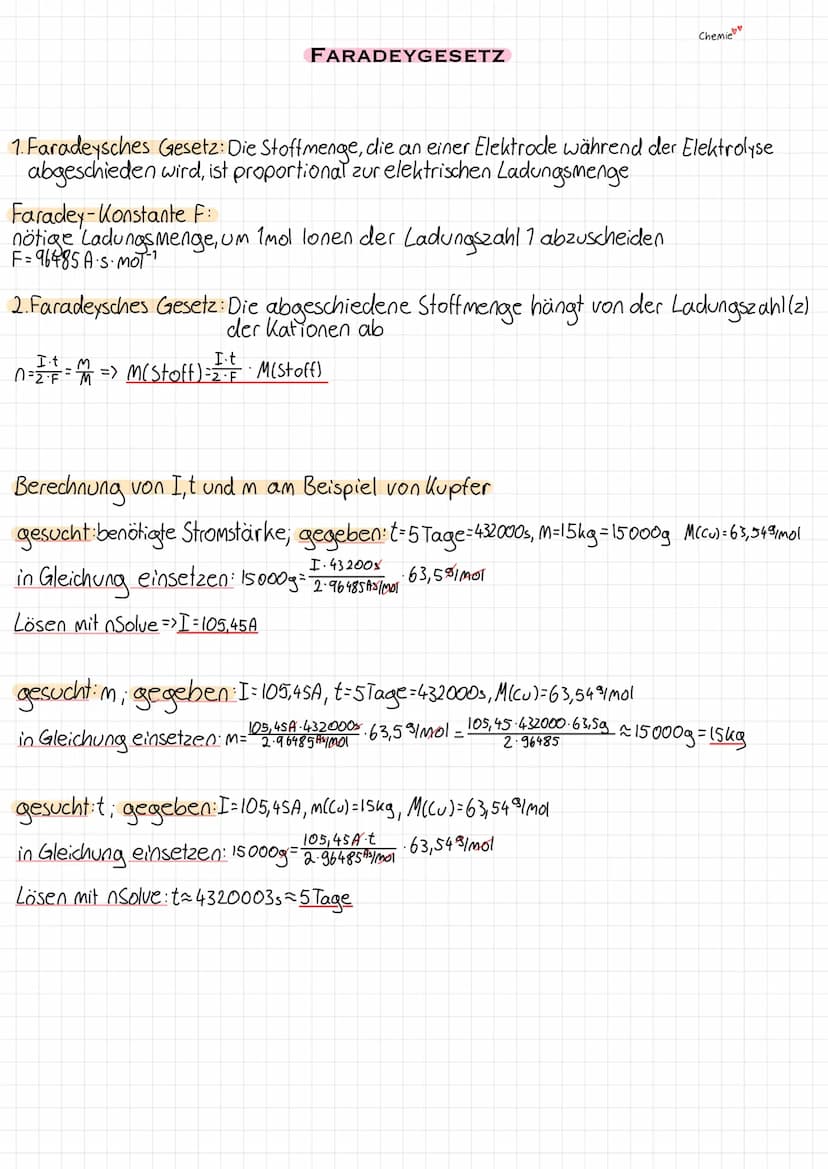 Chemie
FARADEYGESETZ
1. Faradeysches Gesetz: Die Stoffmenge, die an einer Elektrode während der Elektrolyse
abgeschieden wird, ist proportional zur elektrischen Ladungsmenge
Faradey-Konstante F:
nötige Ladungsmenge, um 1mol Ionen der Ladungszahl 1 abzuscheiden
F=96485 A·s·mol⁻¹
2. Faradeysches Gesetz: Die abgeschiedene Stoffmenge hängt von der Ladungszahl (z)
der Kationen ab
n=I·t/2·F=m/M => M(Stoff)=I·t/2·F · M(Stoff)
Berechnung von I, t und m am Beispiel von Kupfer
gesucht: benötigte Stromstärke; gegeben: t=5 Tage=432000s, m=15kg=15000g M(Cu)=63,54g/mol
in Gleichung einsetzen: 15000g=I·43200s/2·96485As/mol ·63,5g/mol
Lösen mit nSolve =>I=105,45A
gesucht: m; gegeben: I=105,45A, t=5Tage=432000s, M(Cu)=63,54g/mol
in Gleichung einsetzen: m=105,45A·432000s/2·96485As/mol ·63,5g/mol = 105,45·432000·63,5g/2·96485 ≈15000g=15kg
gesucht: t; gegeben: I=105,45A, m(Cu)=15kg, M(Cu)=63,54g/mol
in Gleichung einsetzen: 15000g=105,45A·t/2·96485As/mol ·63,54g/mol
Lösen mit nSolve: t≈4320003s≈5Tage